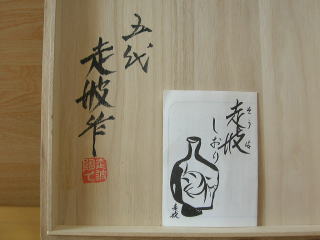 五代
走波作
走波
しおり
そうは
走波